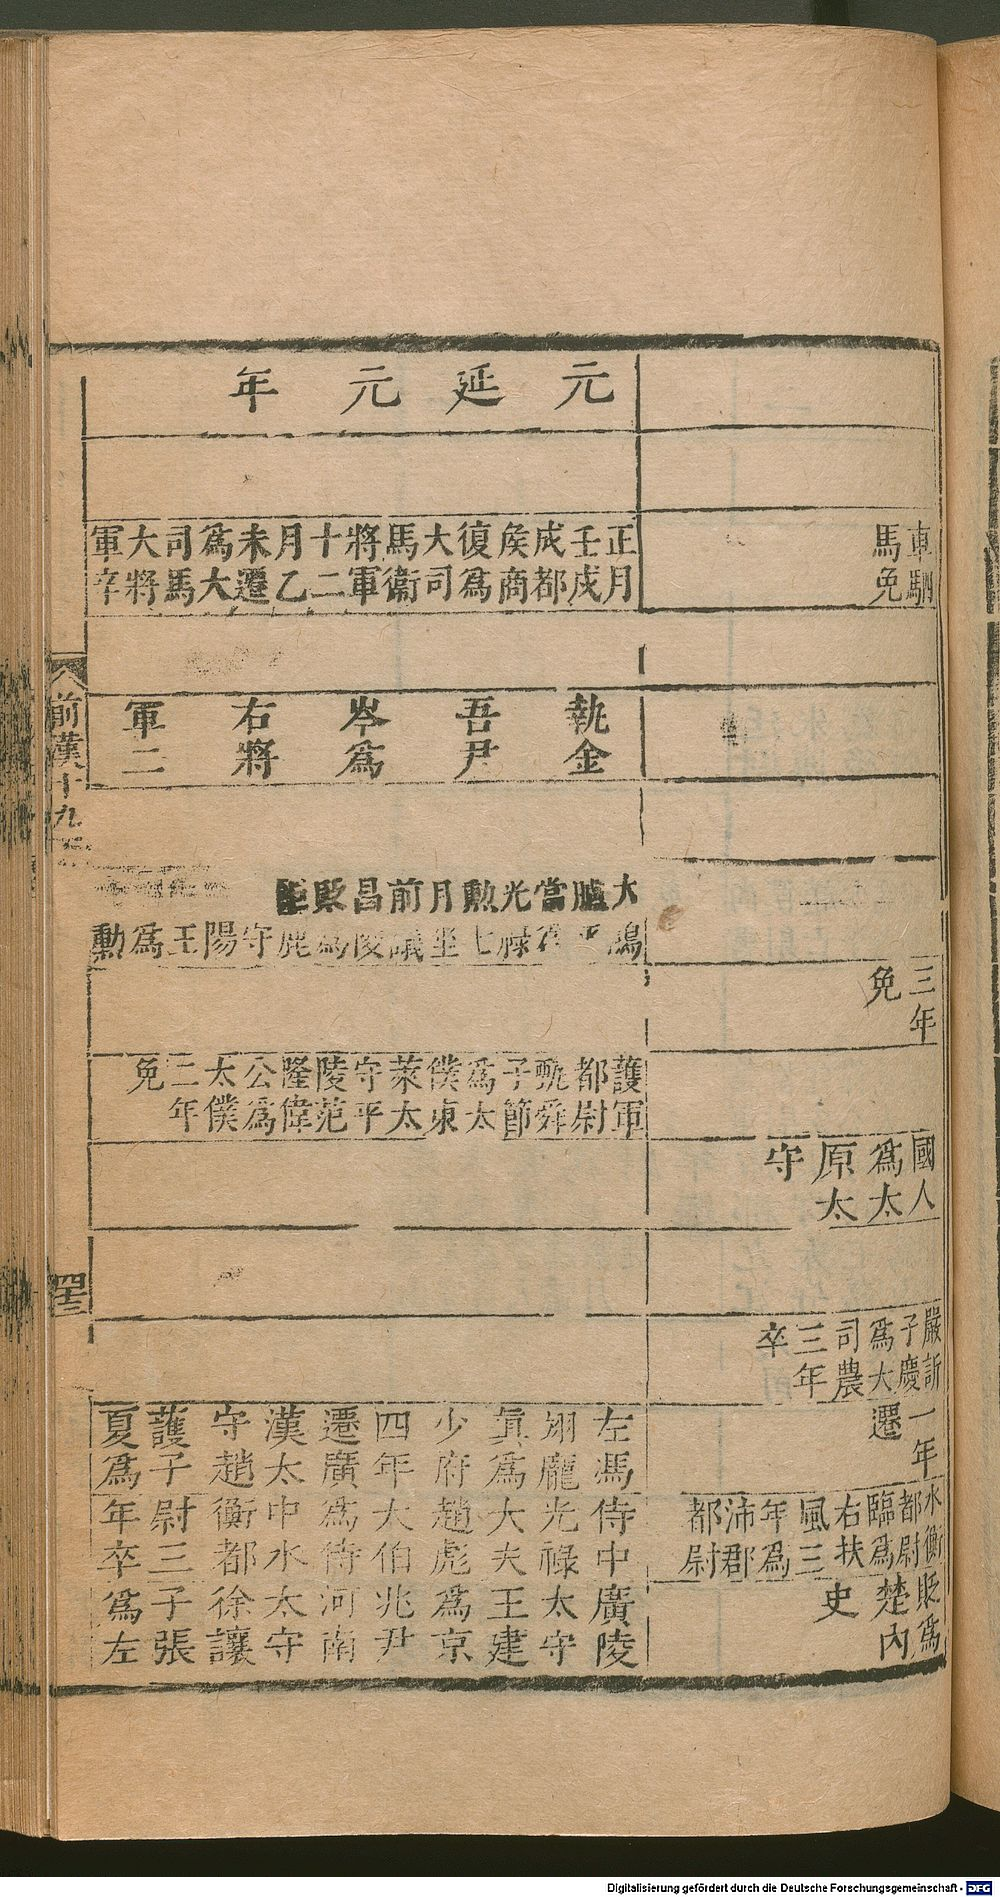 車駟
馬免
三年
免
國人
為太
原太
守
嚴訢
子慶
為大
司農
三年
卒
一年
遷
水衡
都尉
臨為
右扶
風三
年為
沛郡
都尉
貶為
楚內
史
元延元年
正月
壬戌
成都
侯商
復為
大司
馬衞
將軍
十二
月乙
未遷
為大
司馬
大將
軍卒
執金
吾尹
岑為
右將
軍二
大鴻
臚平
當為
光祿
勳七
月坐
前議
昌陵
貶為
鉅鹿
守
陽
王
為
勳
護軍
都尉
甄舜
子節
為太
僕東
萊太
守平
陵范
隆偉
公為
太僕
二年
免
左馮
翊龐
眞為
少府
四年
遷廣
漢太
守趙
護子
夏為
侍中
光祿
大夫
趙彪
大伯
為侍
中水
衡都
尉三
年卒
廣陵
太守
王建
為京
兆尹
河南
太守
徐讓
子張
為左
前漢十九
Digitalisierung gefördert durch die Deutsche Forschungsgemeinschaft - DFG